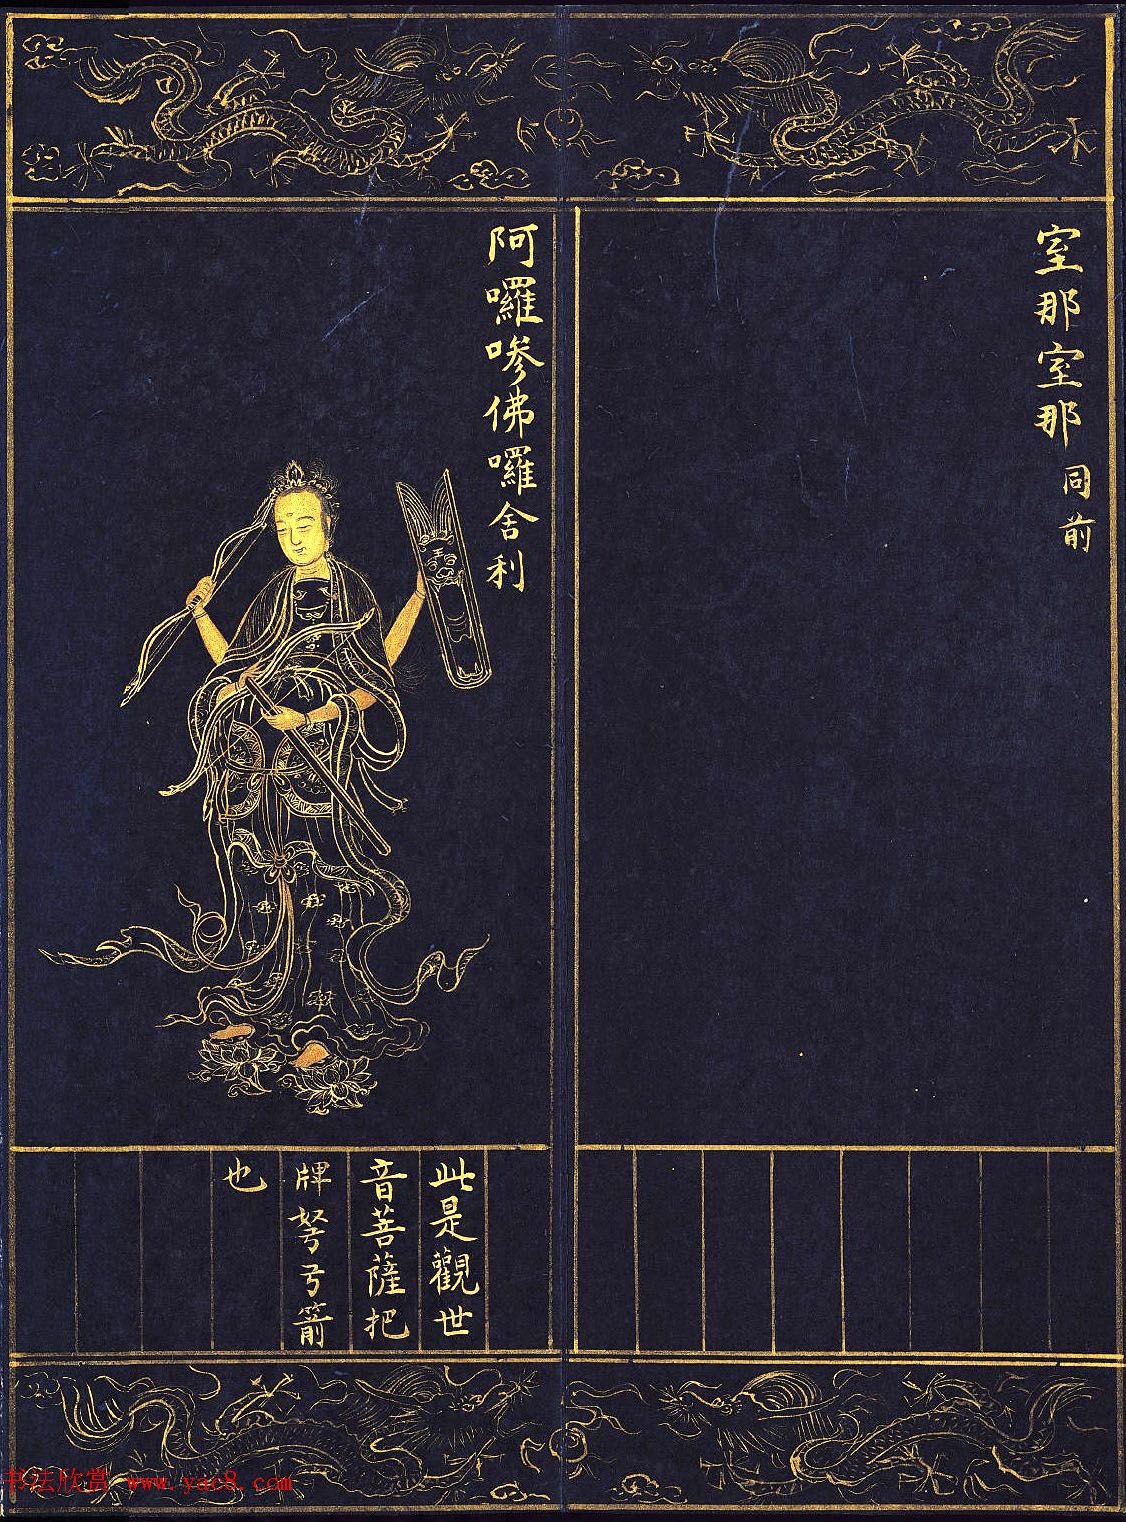 室那室那 同前
阿囉嘇佛囉舍利
此是觀世
音菩薩把
牌弩弓箭
也
书法欣赏 www.yac8.com